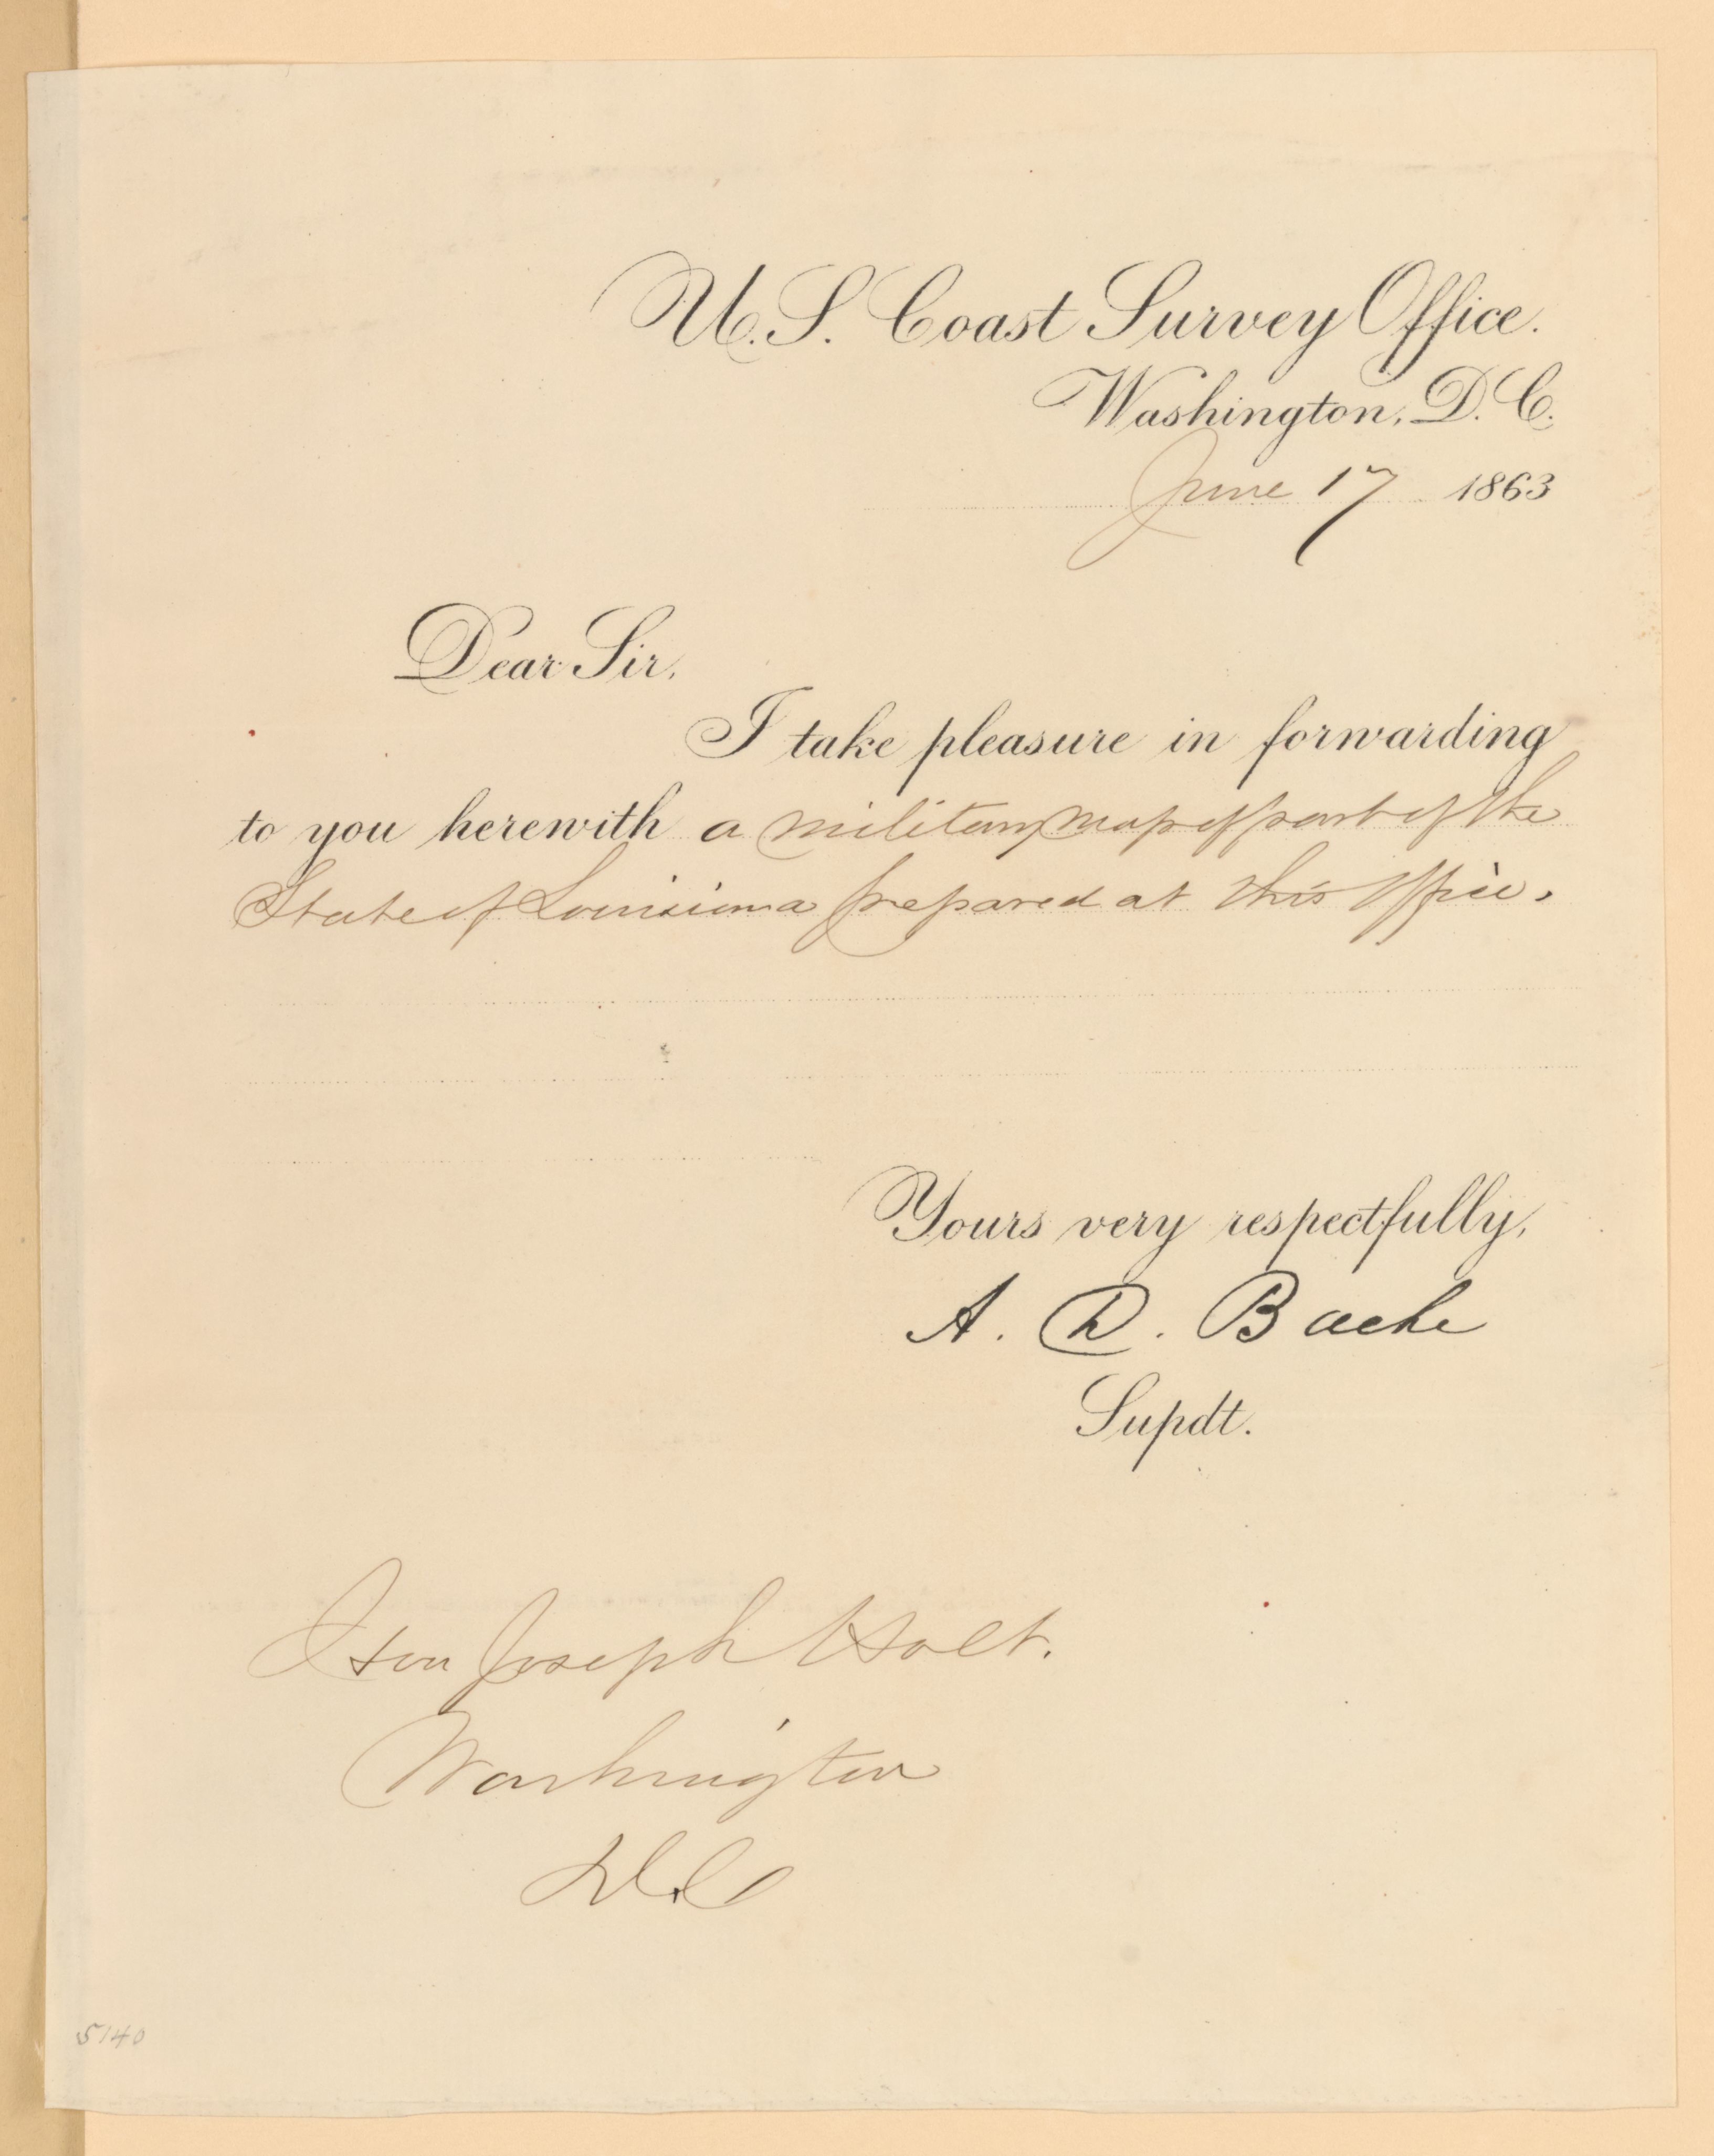 U.S. Coast Survey Office.
Washington, D.C.
June 17 1863
Dear Sir,
I take pleasure in forwarding
to you herewith a military map of part of the
State of Louisiana prepared at this Office.
Yours very respectfully,
A. D. Bache
Supdt.
Hon Joseph Holt.
Washington
D.C
5140